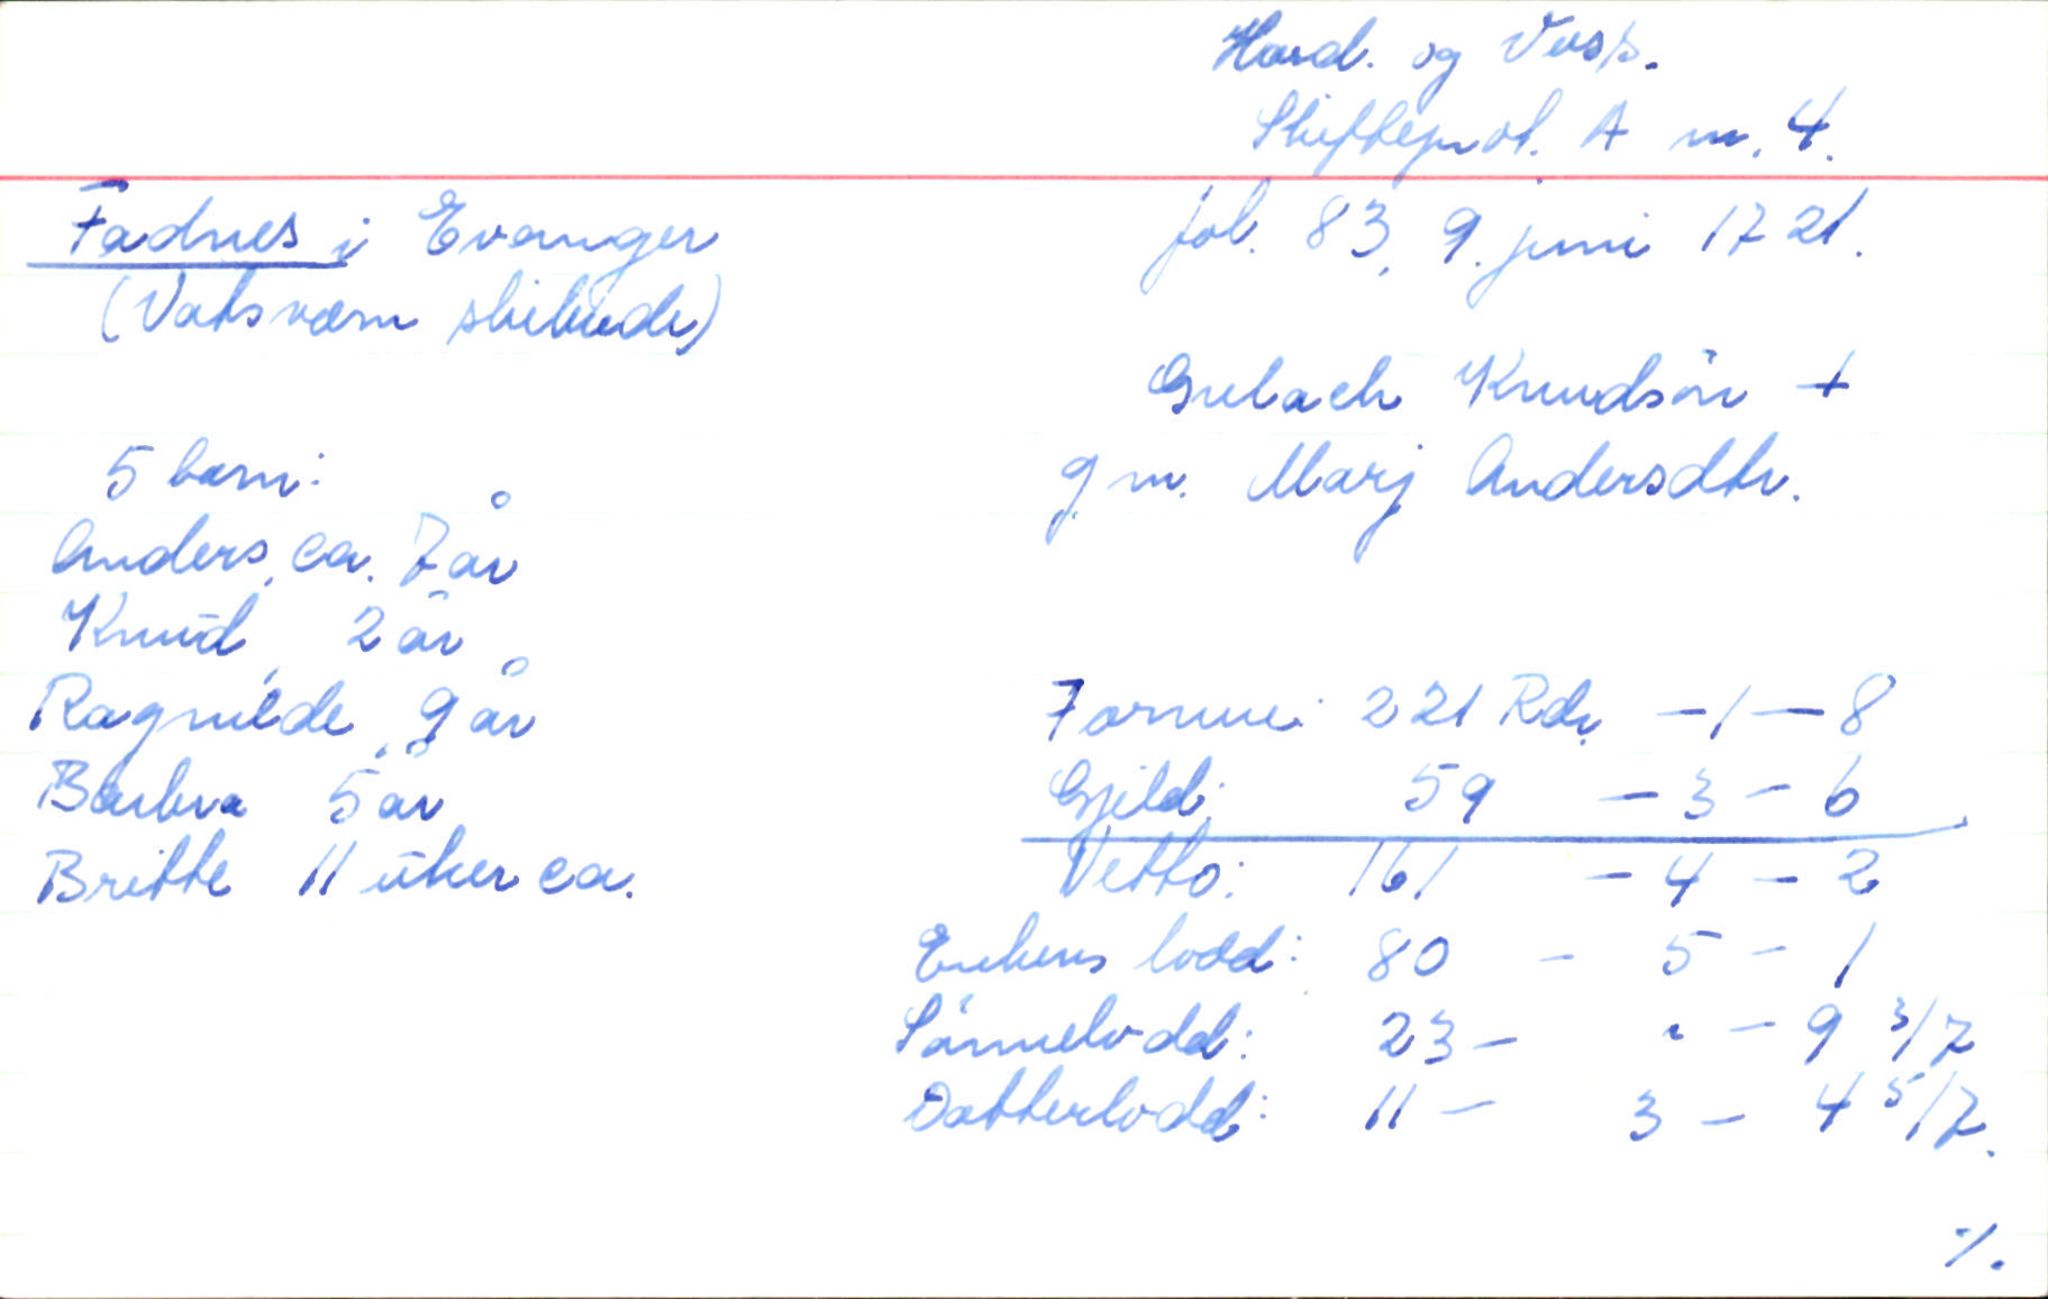 Hard. og Voss.
Skifteprot. A nr. 4.
fol. 83, 9. juni 1721.
Fadnes i Evanger
(Vatsværn skibrede)
Gulach Knudsön +
g. m. Marj Andersdtr.
5 barn:
Anders, ca. 7 år
Knud, 2 år
Ragnilde, 9 år
Barbra 5 år
Britte 11 uker ca.
Formue: 221 Rdr. - 1 - 8
Gjeld: 59 - 3 - 6
Netto: 161 - 4 - 2
Enkens lodd: 80 - 5 - 1
Sönnelodd: 23 - " - 9 3/7
Datterlodd: 11 - 3 - 4 5/7.
./.